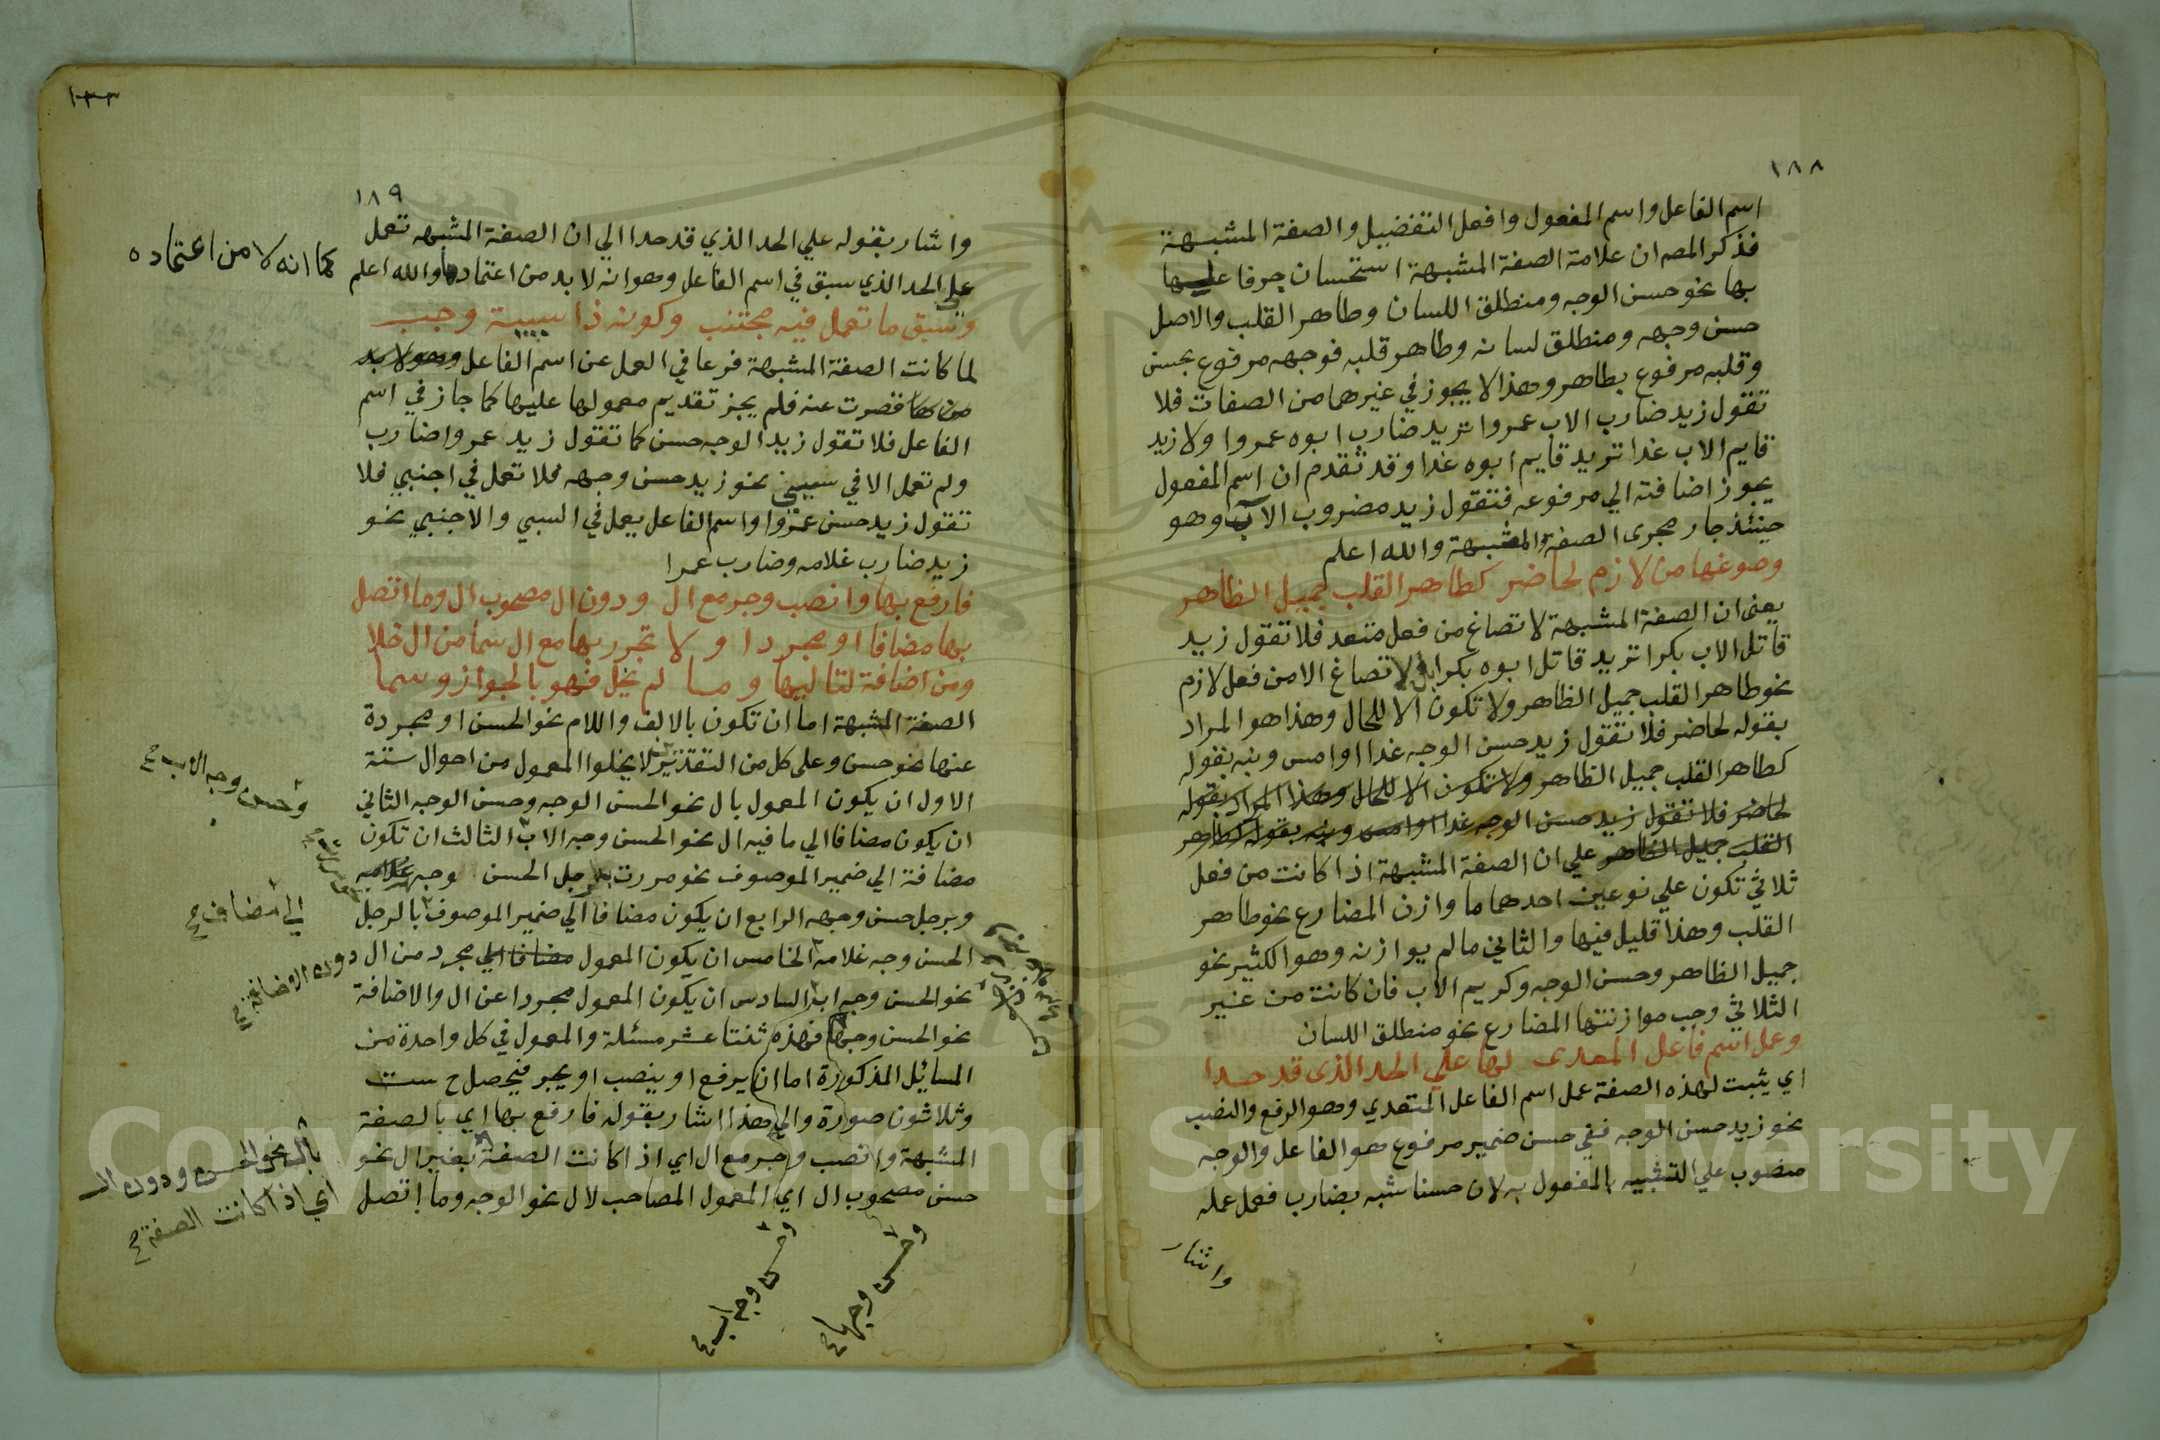 ١٨٨
اسم الفاعل واسم المفعول وافعل التفضيل والصفة المشبهة
فذكر المص ان علامة الصفة المشبهة استحسان جر فاعلها
بها نحو حسن الوجه ومنطلق اللسان وطاهر القلب والاصل
حسن وجهه ومنطلق لسانه وطاهر قلبه فوجهه مرفوع بحسن
وقلبه مرفوع بطاهر وهذا لا يجوز في غيرهما من الصفات فلا
تقول زيد ضارب الاب عمروا تريد ضارب ابوه عمروا ولا زيد
قايم الاب غدا تريد قايم ابوه غدا وقد تقدم ان اسم المفعول
يجوز اضافته الي مرفوعه فتقول زيد مضروب الاب وهو
حينئذ جار مجرى الصفة المشبهة والله اعلم
وصوغها من لازم لحاضر كطاهر القلب جميل الظاهر
يعني ان الصفة المشبهة لا تصاغ من فعل متعد فلا تقول زيد
قاتل الاب بكرا تريد قاتل ابوه بكرا بل لا تصاغ الا من فعل لازم
نحو طاهر القلب جميل الظاهر ولا تكون الا للحال وهذا هو المراد
بقوله لحاضر فلا تقول زيد حسن الوجه غدا او امس ونبه بقوله
كطاهر القلب جميل الظاهر ولا تكون الا للحال وهذا المراد بقوله
لحاضر فلا تقول زيد حسن الوجه غدا او امس ونبه بقوله كطاهر
القلب جميل الظاهر علي ان الصفة المشبهة اذا كانت من فعل
ثلاثي تكون علي نوعين احدهما ما وازن المضارع نحو طاهر
القلب وهذا قليل فيها والثاني ما لم يوازنه وهو الكثير نحو
جميل الظاهر وحسن الوجه وكريم الاب فان كانت من غير
الثلاثي وجب موازنتها المضارع نحو منطلق اللسان
وعمل اسم فاعل المعدى لها علي الحد الذى قد حدا
اي يثبت لهذه الصفة عمل اسم الفاعل المتعدي وهو الرفع والنصب
نحو زيد حسن الوجه ففي حسن ضمير مرفوع هو الفاعل والوجه
منصوب علي التشبيه بالمفعول به لان حسنا شبه بضارب فعمل عمله
واشار
١٨٩
واشار بقوله علي الحد الذي قد حدا الي ان الصفة المشبهه تعمل
علي الحد الذي سبق في اسم الفاعل وهو انه لا بد من اعتمادها والله اعلم
كما انه لا من اعتماده
وسبق ما تعمل فيه مجتنب وكونه ذا سببية وجب
لما كانت الصفة المشبهة فرعا في العمل عن اسم الفاعل وهو لا بد
من كما قصرت عنه فلم يجز تقديم معمولها عليها كما جاز في اسم
الفاعل فلا تقول زيد الوجه حسن كما تقول زيد عمروا ضارب
ولم تعمل الا في سببي نحو زيد حسن وجهه فلا تعمل في اجنبي فلا
تقول زيد حسن عمروا واسم الفاعل يعمل في السببي والاجنبي نحو
زيد ضارب غلامه وضارب عمرا
فارفع بها وانصب وجر مع ال ودون ال مصحوب ال وما اتصل
بها مضافا او مجردا ولا تجرر بها مع ال سما من ال خلا
ومن اضافة لتاليها وما لم يخل فهو بالجواز وسما
الصفة المشبهة اما ان تكون بالالف واللام نحو الحسن او مجردة
عنها نحو حسن وعلى كل من التقديرين لا يخلوا المعمول من احوال ستة
الاول ان يكون المعمول بال نحو الحسن الوجه وحسن الوجه الثاني
ان يكون مضافا الي ما فيه ال نحو الحسن وجه الاب الثالث ان تكون
وحسن وجه الاب
مضافة الي ضمير الموصوف نحو مررت بالرجل الحسن وجهه
وبرجل حسن وجهه الرابع ان يكون مضافا الي ضمير الموصوف بالرجل
الي مضاف
الحسن وجه غلامه الخامس ان يكون المعمول مضافا الي مجرد من ال
دون الاضافة
نحو الحسن وجه اب السادس ان يكون المعمول مجردا عن ال والاضافة
نحو الحسن وجها فهذه ثنتا عشر مسئلة والمعمول في كل واحدة من
المسائل المذكورة اما ان يرفع او ينصب او يجر فيحصل ح ست
وثلاثون صورة والي هذا اشار بقوله فارفع بها اي بالصفة
المشبهة وانصب وجر مع ال اي اذا كانت الصفة بغير ال نحو
بال نحو الحسن ودون ال
اي اذا كانت الصفة
حسن مصحوب ال اي المعمول المصاحب لال نحو الوجه وما اتصل
وحسن وجها
وحسن وجه اب